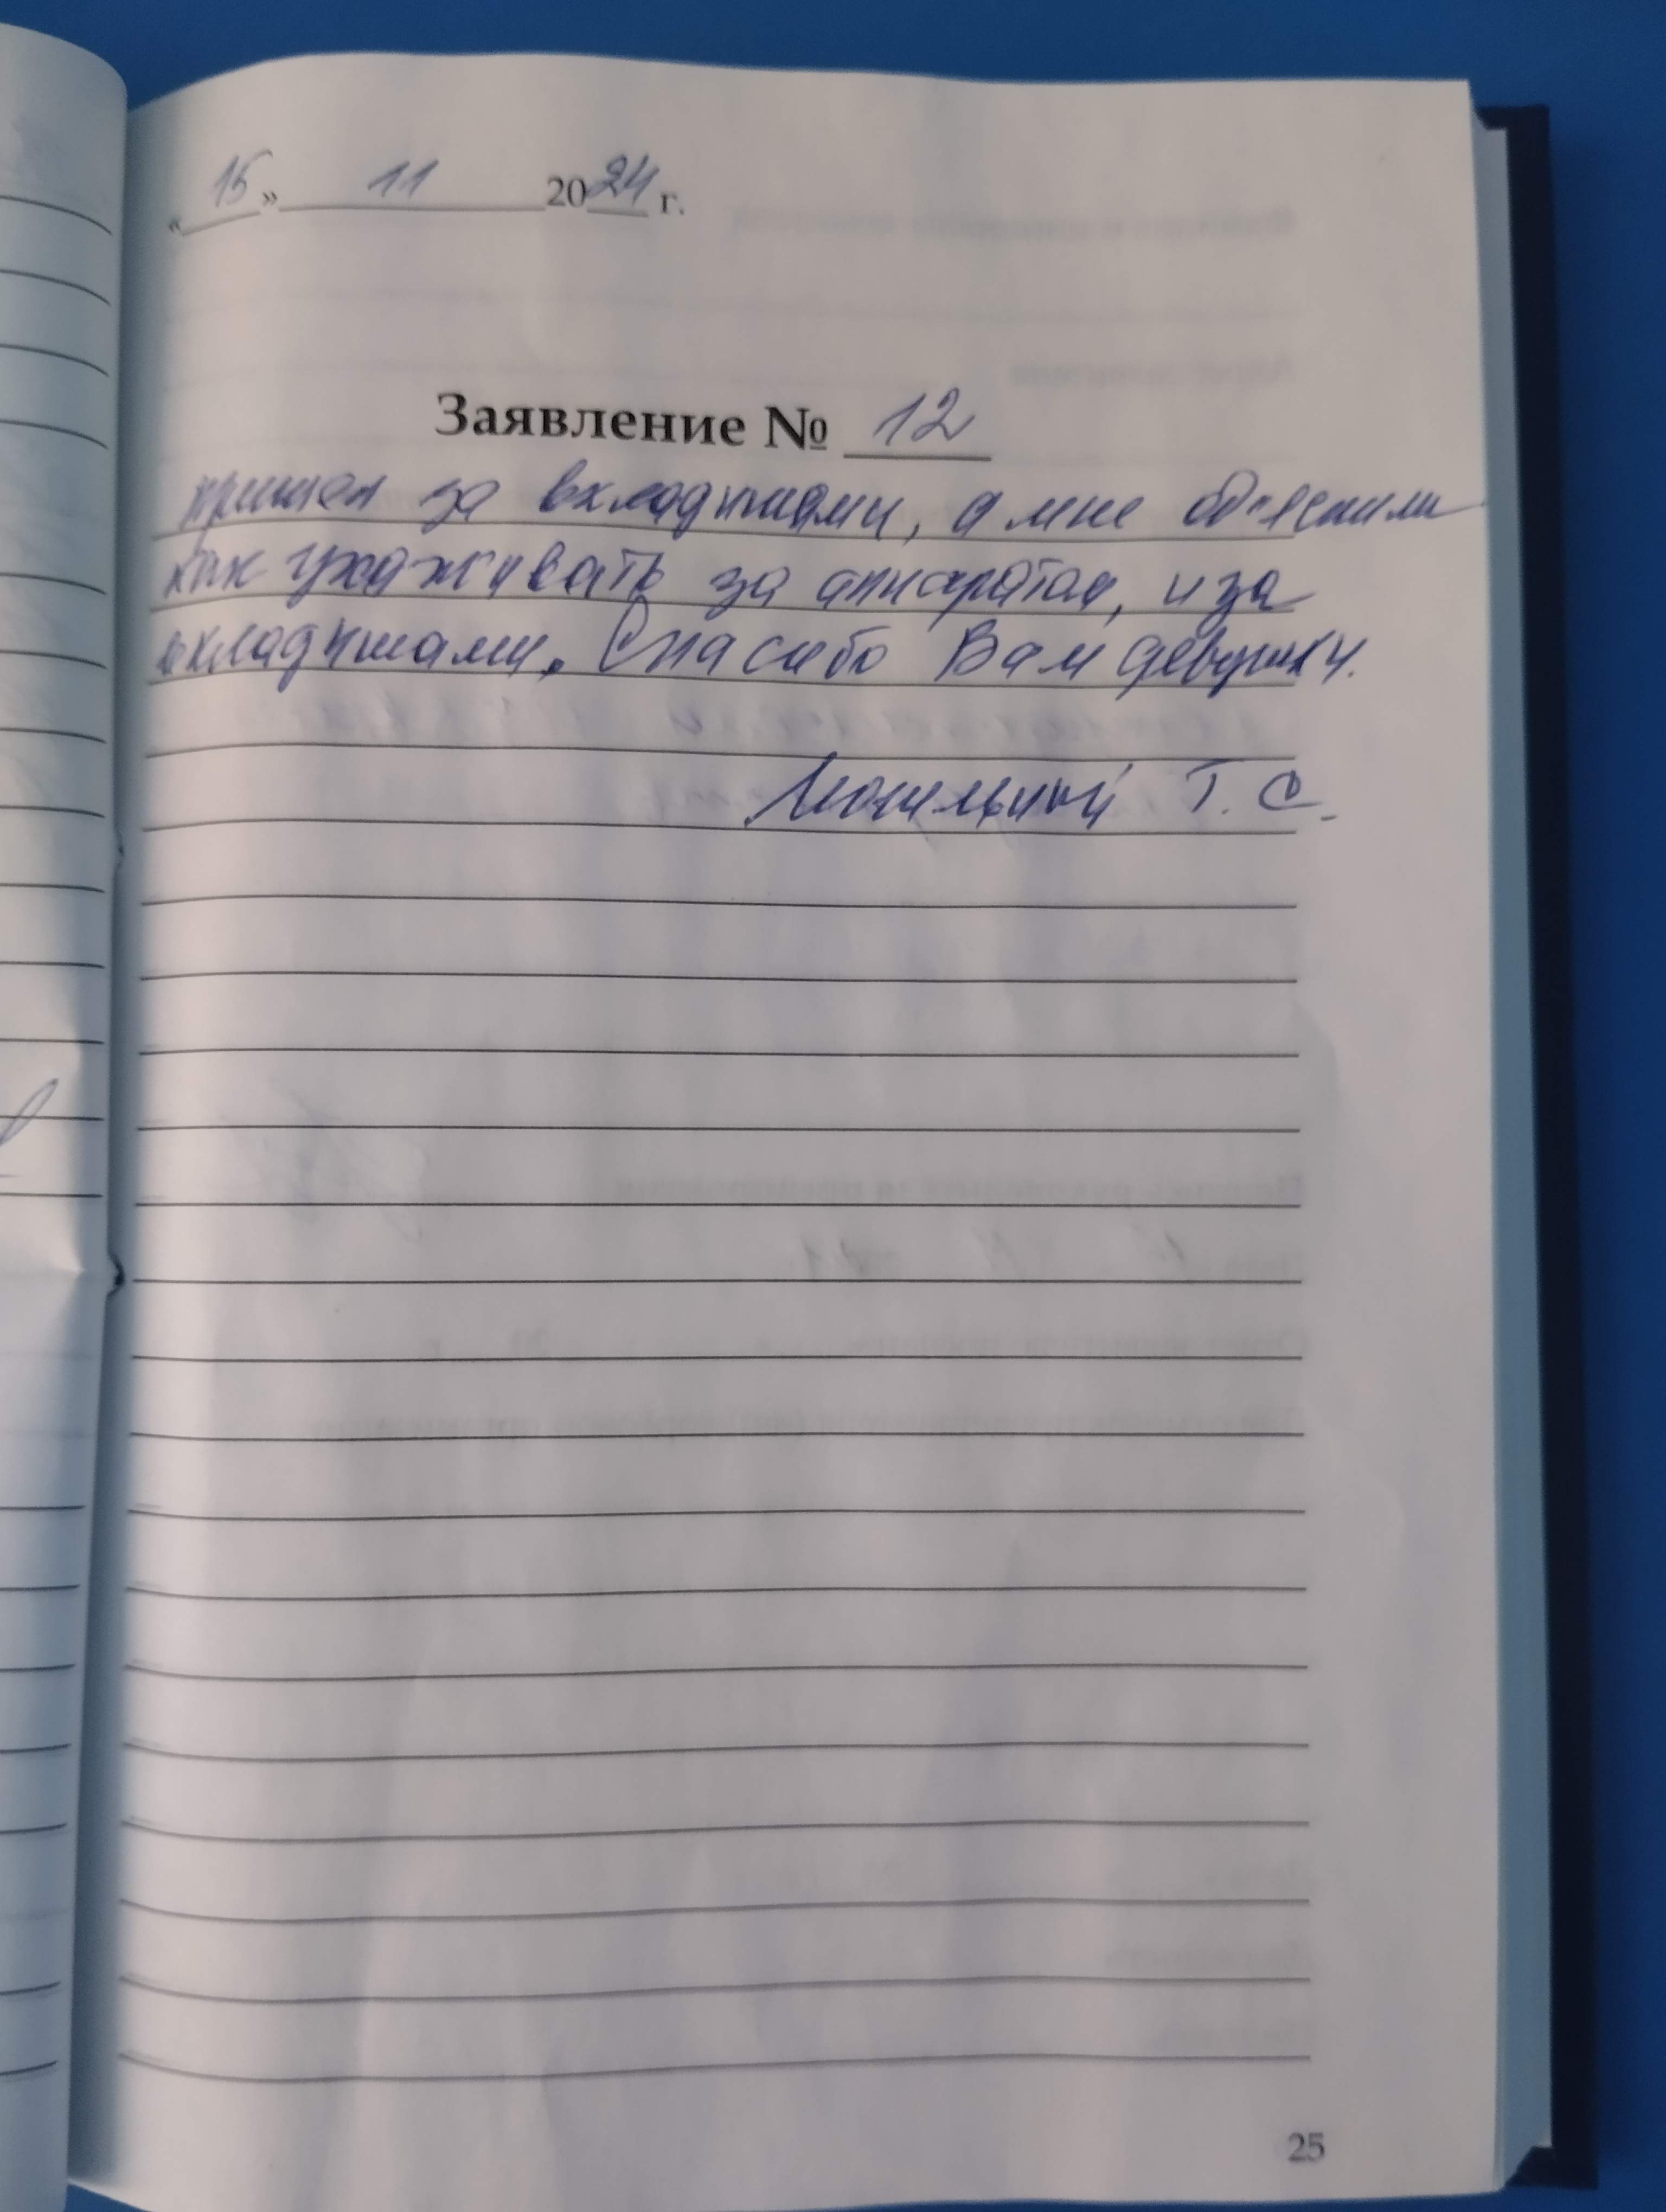 « 15 » 11 2024 г.
Заявление № 12
пришел за вкладышами, а мне объяснили
как ухаживать за аппаратом, и за
вкладышами. Спасибо Вам девушки.
Могильный Т. С.
25